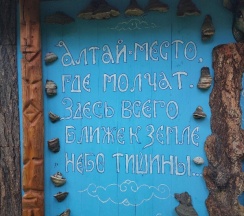 Алтай-место,
где молчат.
Здесь всего
ближе к земле
небо тишины...